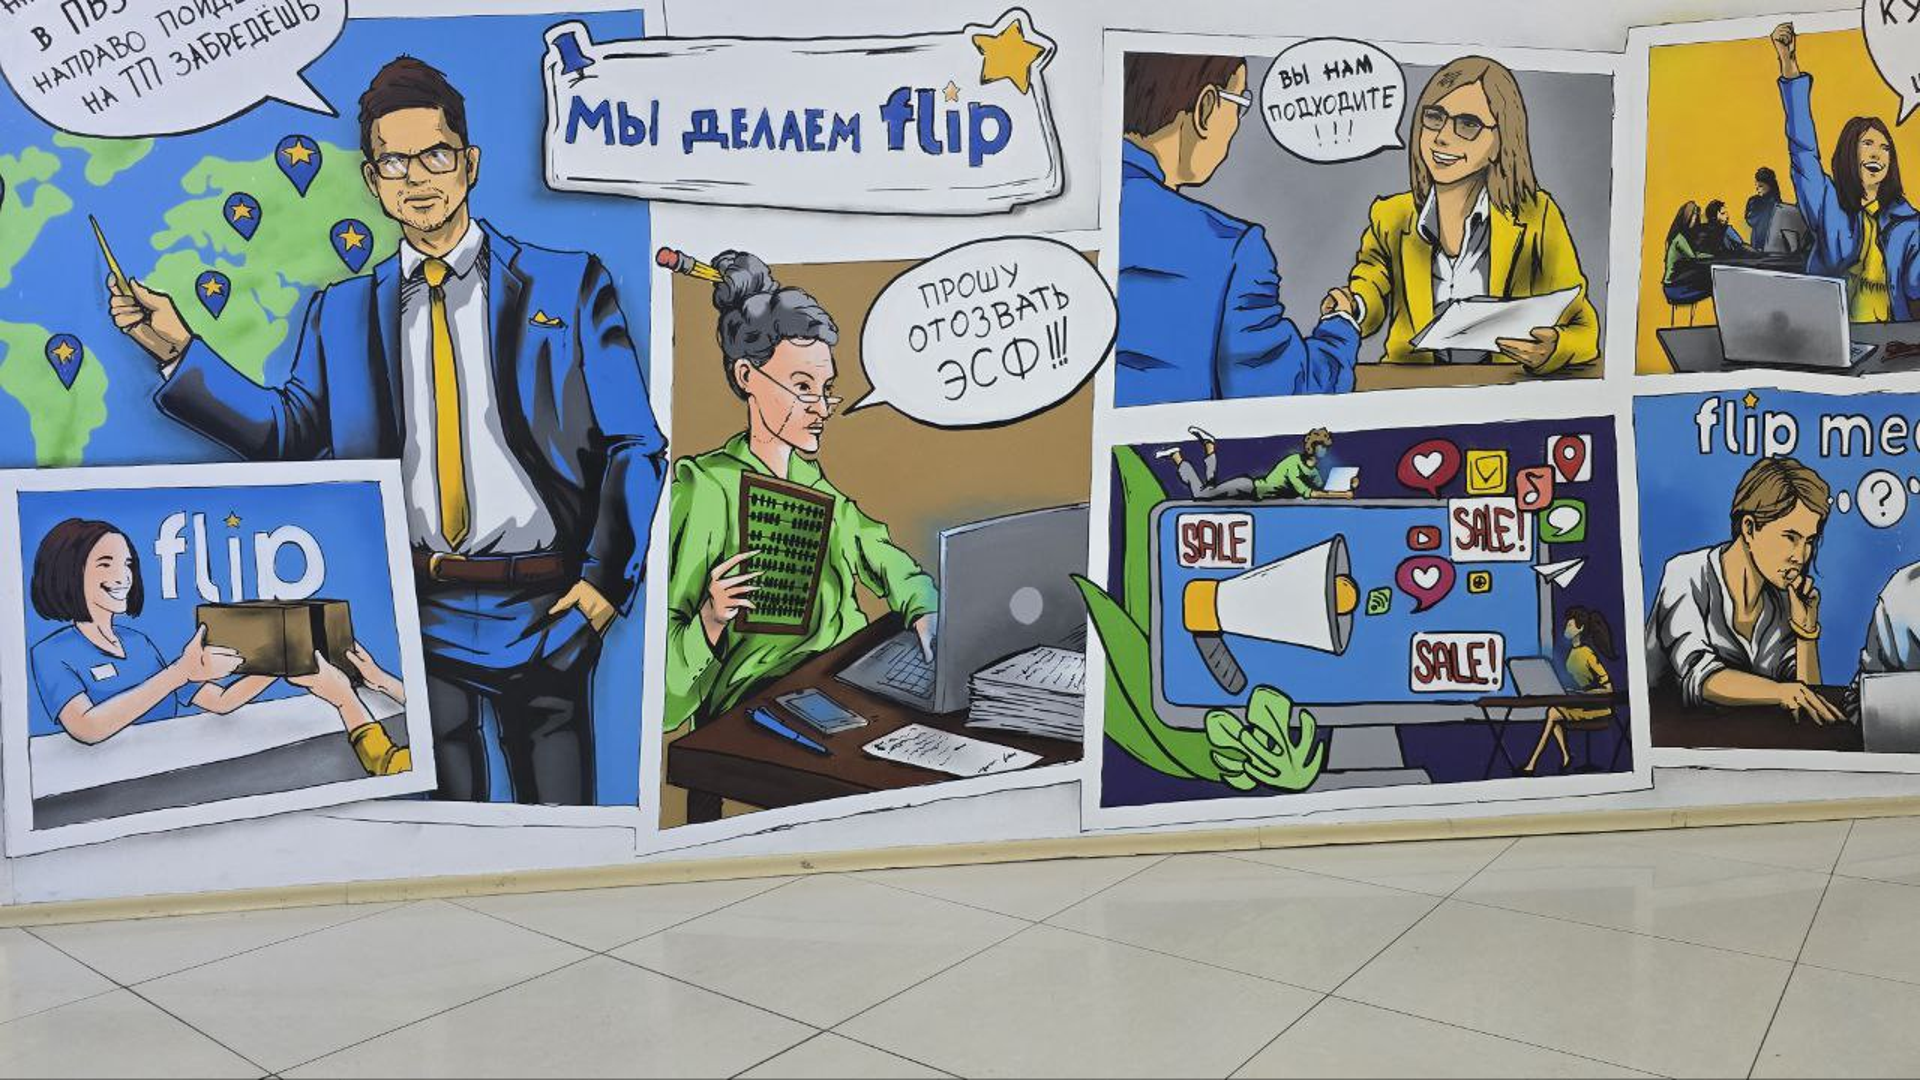 В ПВЗ
НАПРАВО
НА ТП ЗАБРЕДЁШЬ
МЫ ДЕЛАЕМ flip
ПРОШУ
ОТОЗВАТЬ
ЭСФ!!!
ВЫ НАМ
ПОДХОДИТЕ
!!!
flip
SALE
SALE!
SALE!
flip
?